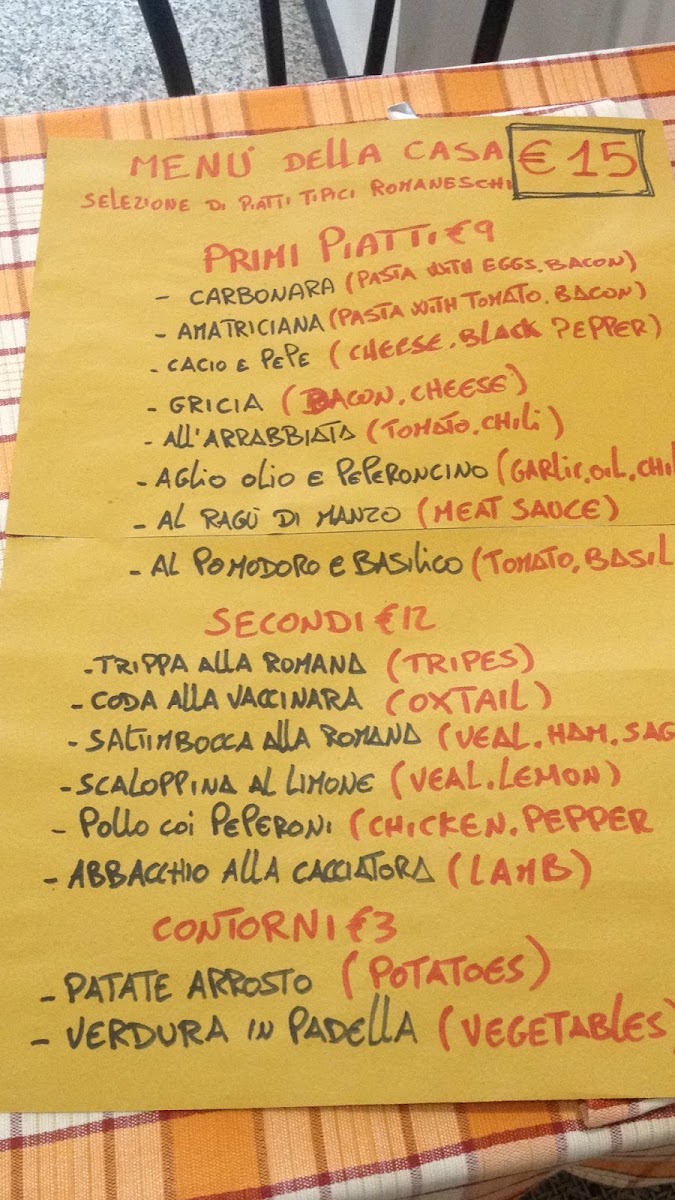 MENU' DELLA CASA € 15
SELEZIONE DI PIATTI TIPICI ROMANESCHI
PRIMI PIATTI € 9
- CARBONARA (PASTA WITH EGGS. BACON)
- AMATRICIANA (PASTA WITH TOMATO. BACON)
- CACIO E PEPE (CHEESE. BLACK PEPPER)
- GRICIA (BACON. CHEESE)
- ALL'ARRABBIATA (TOMATO. CHILI)
- AGLIO OLIO E PEPERONCINO (GARLIC. OIL. CHIL
- AL RAGÙ DI MANZO (MEAT SAUCE)
- AL POMODORO E BASILICO (TOMATO, BASIL
SECONDI € 12
- TRIPPA ALLA ROMANA (TRIPES)
- CODA ALLA VACCINARA (OXTAIL)
- SALTIMBOCCA ALLA ROMANA (VEAL. HAM. SAG
- SCALOPPINA AL LIMONE (VEAL. LEMON)
- POLLO COI PEPERONI (CHICKEN. PEPPER
- ABBACCHIO ALLA CACCIATORA (LAMB)
CONTORNI € 3
- PATATE ARROSTO (POTATOES)
- VERDURA IN PADELLA (VEGETABLES)